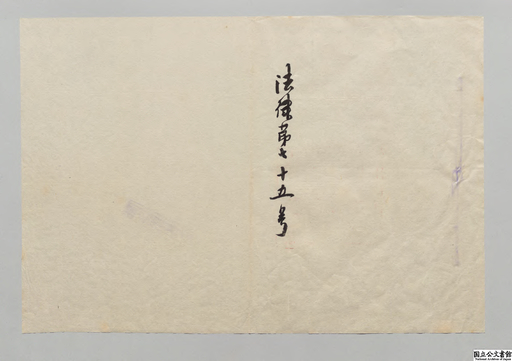 法律第七十五号
国立公文書館
National Archives of Japan